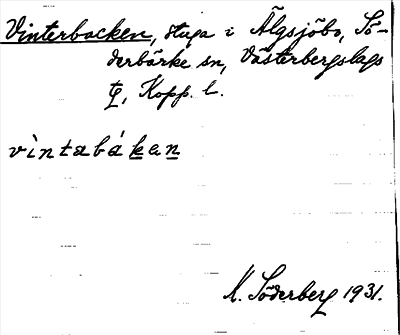 Vinterbacken, stuga i Älgsjöbo, Sö-
derbärke sn, Västerbergslags
tg, Kopp. l.
vìntabákan
M. Söderberg 1931.